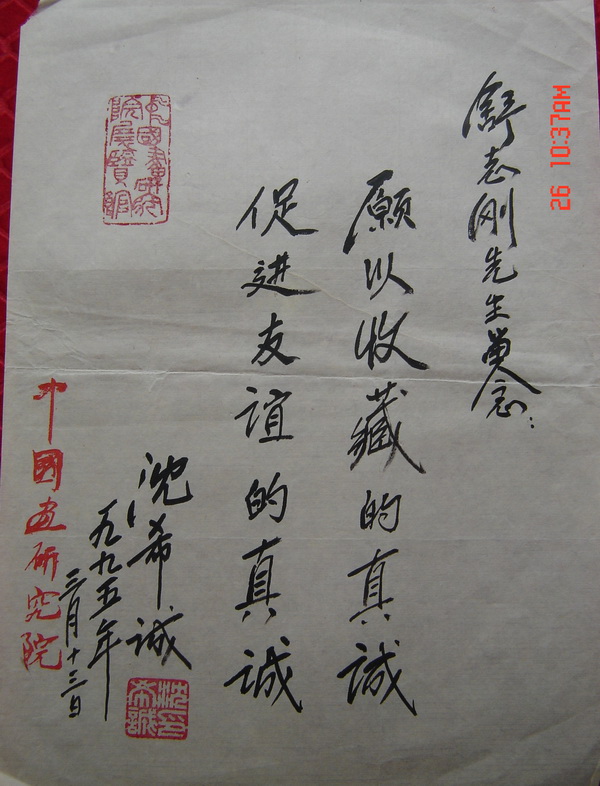 舒志刚先生留念：
愿以收藏的真誠
促进友谊的真誠
沈希誠
一九九五年
三月十三日
中國画研究院
中國畫研究院展覽館
沈希誠印
26 10:37AM